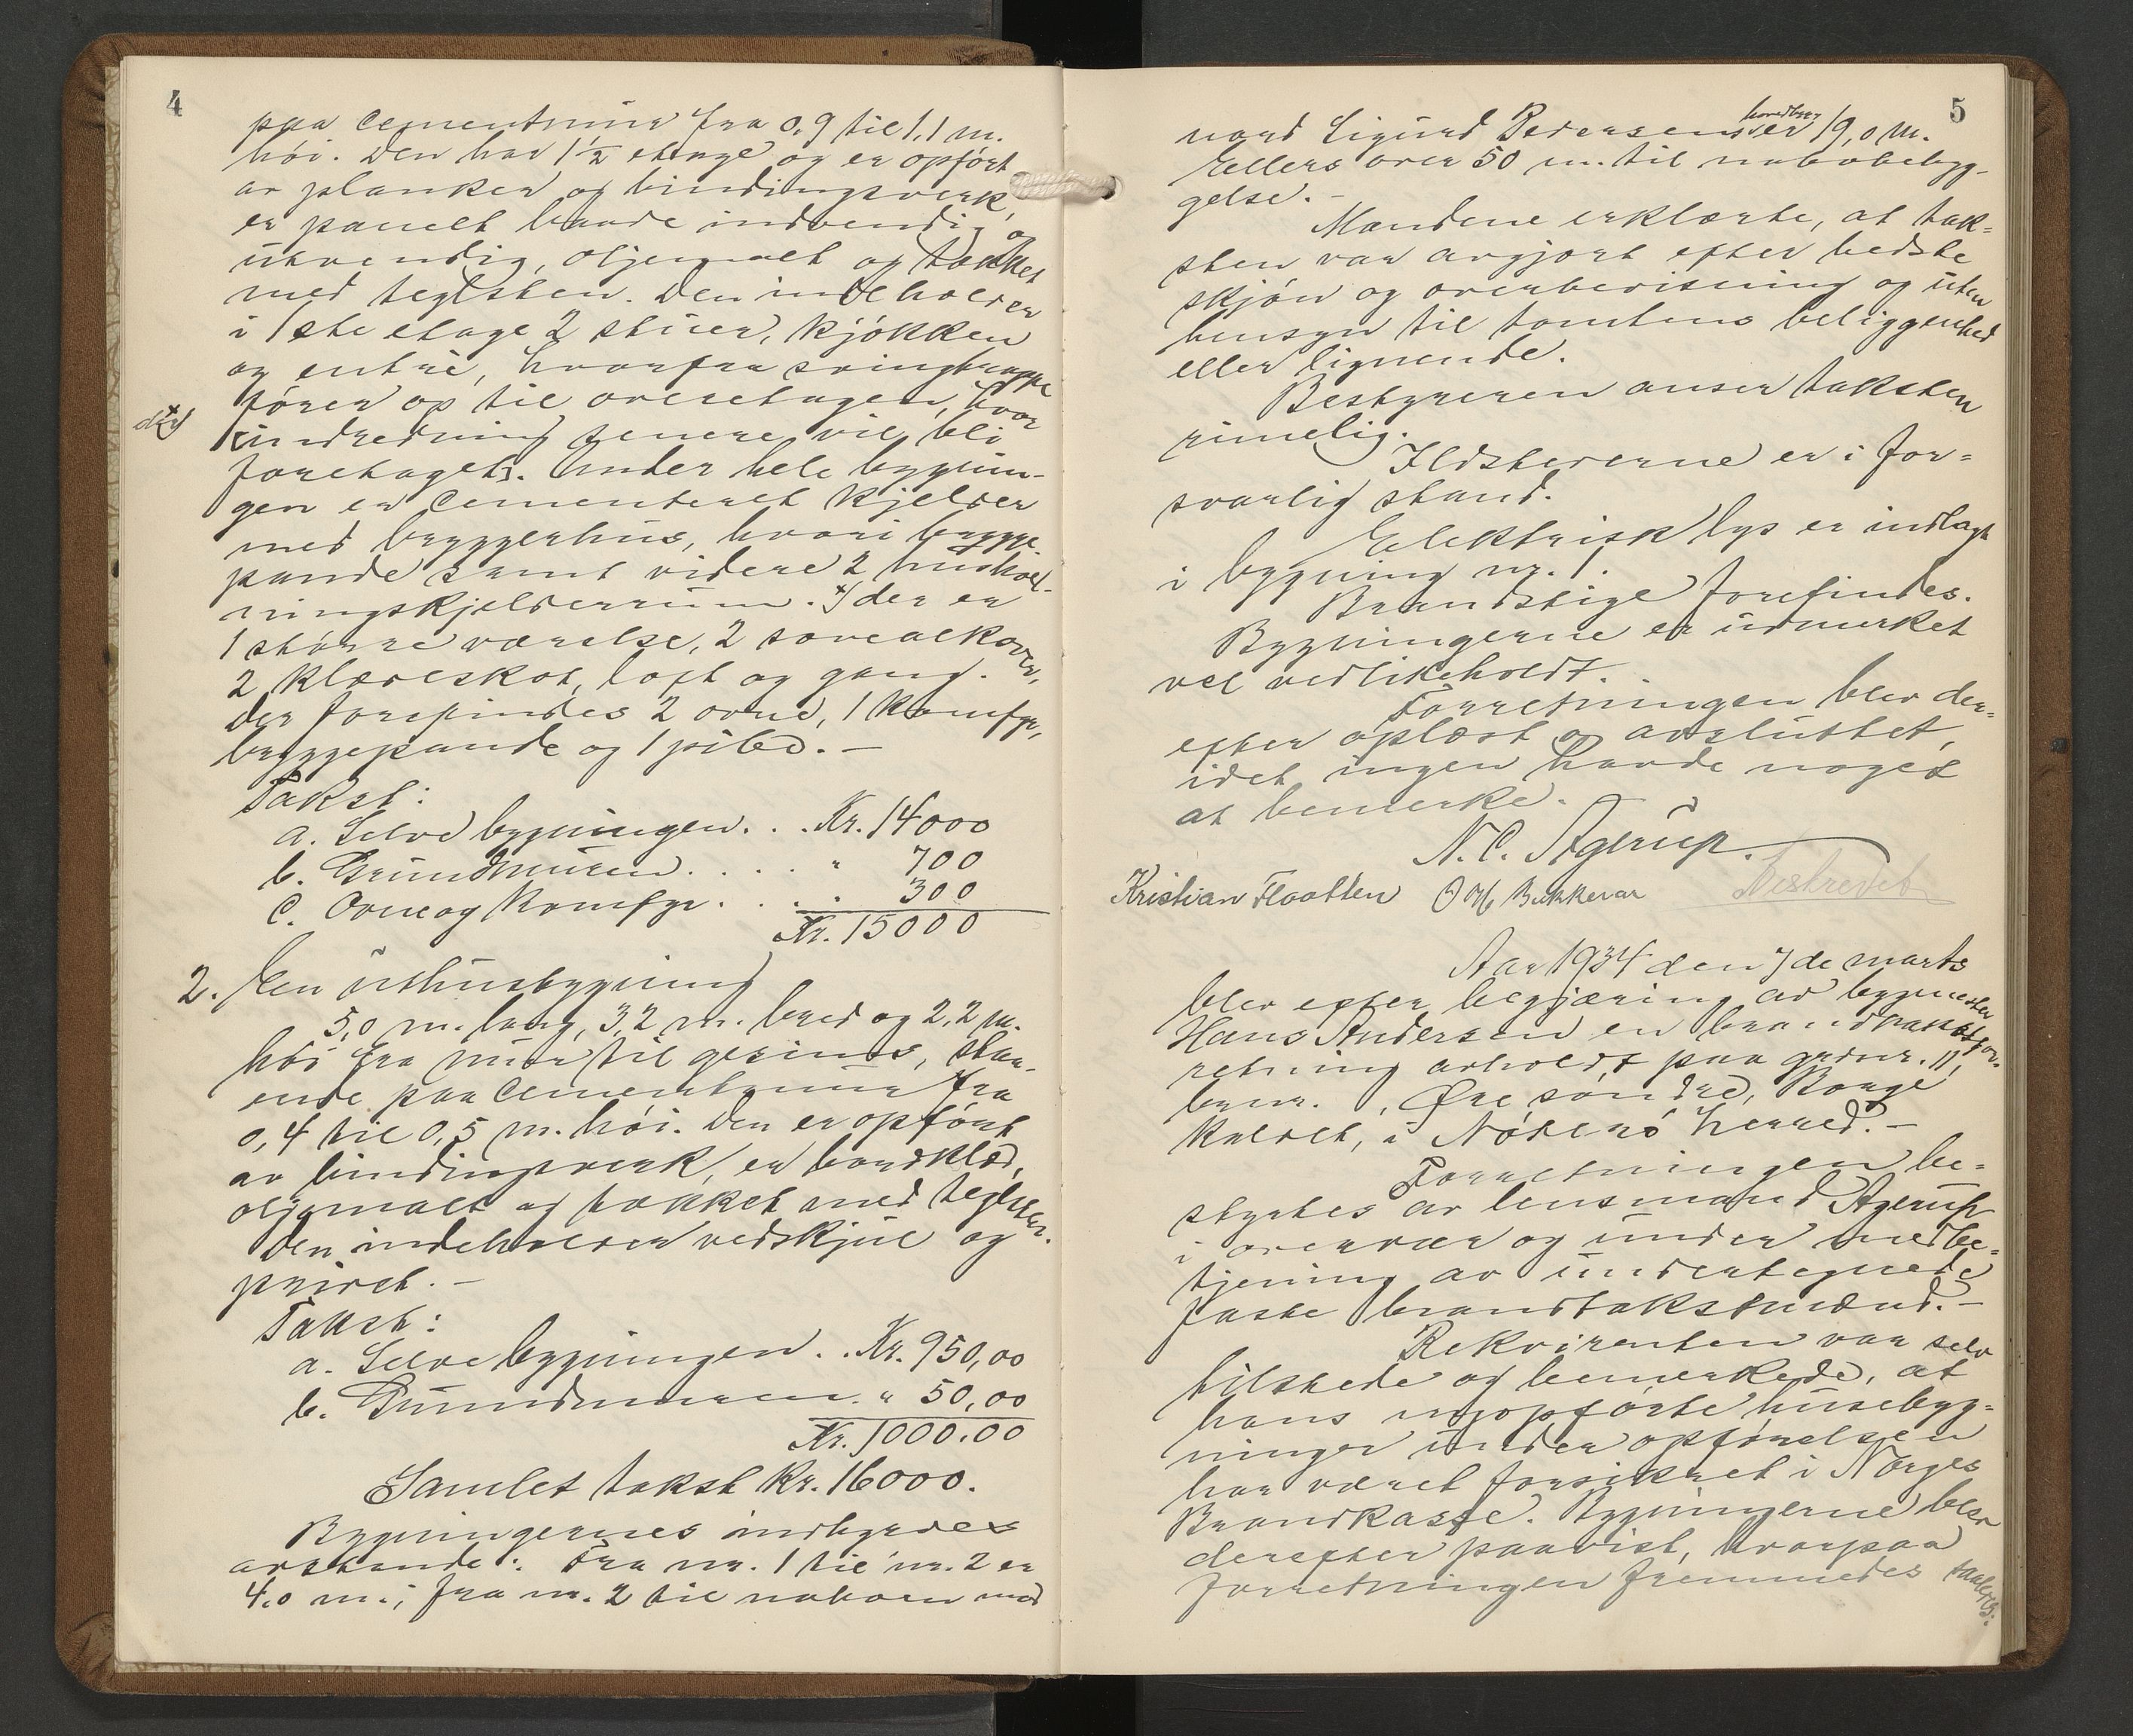 4
paa cementmur fra 0,9 til 1,1 m.
høi. Den har 1½ etage og er opført
av planker og bindingsverk,
er panelt baade indvendig og
utvendig, oljemalt og tækket
med teglsten. Den indeholder
i 1ste etage 2 stuer, kjøkken
og entré, hvorfra svingtrappe
fører op til overetagen, hvor
indredning senere vil bli
foretaget. Under hele bygnin-
gen er cementeret kjelder
med bryggerhus, hvori brygge-
pande samt videre 2 hushold-
ningskjelderrum. I der er
1 større værelse, 2 sovealkover,
2 klæreskot, loft og gang.
Der forefindes 2 ovne, 1 komfyr,
bryggepande og 1 pibe. —
Takst:
a. Selve bygningen. . . Kr. 14000
b. Grundmuren. . . . . " 700
c. Ovne og komfyr. . . . 300
Kr. 15000
2. En uthusbygning
5,0 m. lang, 3,2 m. bred og 2,2 m.
høi fra mur til gesims, staa-
ende paa cementmur fra
0,4 til 0,5 m. høi. Den er opført
av bindingsverk, er bordklæd,
oljemalt og tækket med teglsten.
Den indeholder vedskjul og
privet. —
Takst:
a. Selve bygningen. . Kr. 950,00
b. Grundmuren. " 50,00
Kr. 1000.00
Samlet takst Kr. 16000.
Bygningernes indbyrdes
avstande: Fra nr. 1 til nr. 2 er
4,0 m.; fra nr. 2 til naboen mod
5
nord Sigurd Pedersens er 19,0 m.
Ellers over 50 m. til nabobebyg-
gelse. —
Mændene erklærte, at tak-
sten var avgjort efter bedste
skjøn og overbevisning og uten
hensyn til tomtens beliggenhed
eller lignende.
Bestyreren anser taksten
rimelig.
Ildstederne er i for-
svarlig stand.
Elektrisk lys er indlagt
i bygning nr. 1.
Brandstige forefindes.
Bygningerne er udmerket
vel vedlikeholdt.
Forretningen blev der-
efter oplæst og avsluttet,
idet ingen havde noget
at bemerke.
N. C. Agerup.
Kristian Flaatten O Bakkevar
Aar 1934 den 7de marts
blev efter begjæring av bygmester
Hans Andersen en brandtakstfor-
retning avholdt paa gardsnr. 11,
brnr. , Øre søndre, Borge
kaldet, i Nøterø herred. —
Forretningen be-
styrtes av lensmand Agerup
i overvær og under medbe-
tjening av undertegnede
faste brandtakstmænd. —
Rekvirenten var selv
tilstede og bemerkede, at
hans nyopførte husebyg-
ninger under opførelsen
har været forsikret i Norges
Brandkasse. Bygningerne blev
derefter paavist, hvorpaa
forretningen fremmedes saaledes: